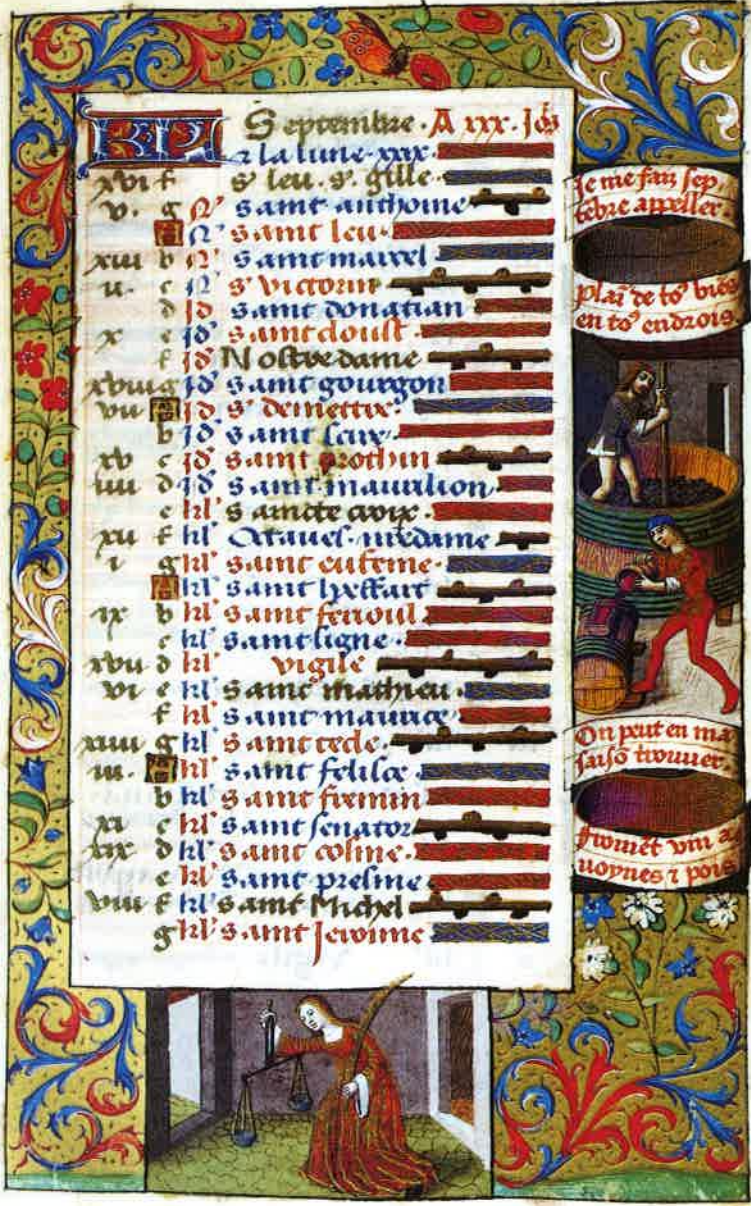 KL Septembre. A xxx. Jo's
2 la lune. xxx.
xvi f s' leu. s'. gille.
v. g N' saint anthoine
A N' saint leu.
xiii b N' saint marcel
ii. c N' s' victorin
d Jd saint donatian
x e Jd' saint cloust
f Jd' Nostre dame
xviii g Jd' saint gourgon
vii A Jd s' demettre.
b Jd' saint
xv c Jd' saint prothin
iiii d Jd' saint maurilion
e kl' saincte croix.
xii f kl' Octaues.
i g kl' saint eufeme.
A kl' saint
ix b kl' saint ferioul
c kl' saint ligne.
xvii d kl' vigile
vi e kl' saint mathieu.
f kl' saint maurice
xiiii g kl' saint tecle.
iii. A kl' saint felise
b kl' saint firmin
xi c kl' saint senator
xix d kl' saint cosme.
e kl' saint
viii f kl' saint Michel
g kl' saint Jerome
Je me fais sep,
tēbre appeller.
plaī de to' biēs
en to' endrois.
On peut en ma
saisō trouuer.
fromēt vin a
uoynes 2 pois